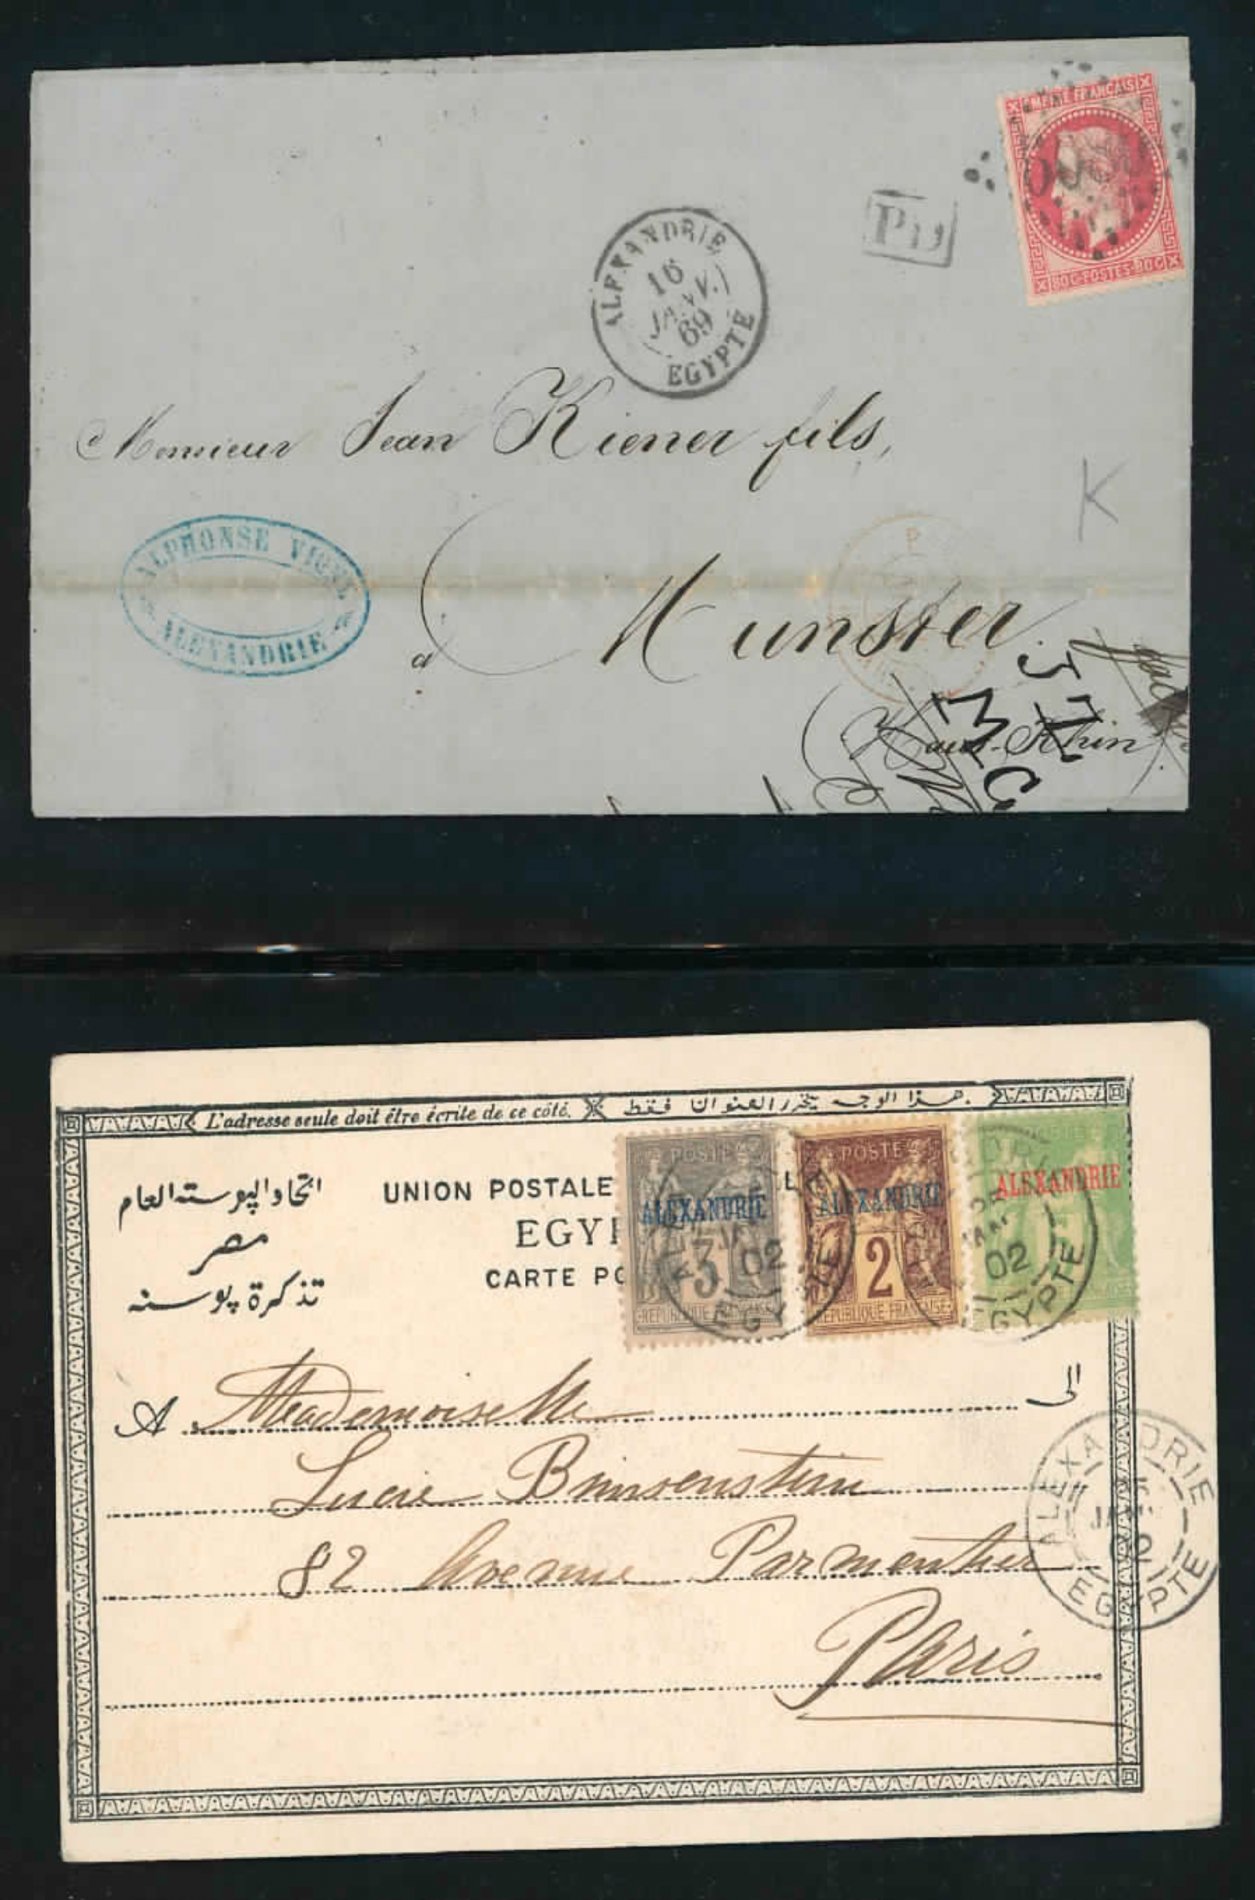 EMPIRE FRANÇAIS
80C POSTES 80C
PD
ALEXANDRIE
16
JANV.
69
EGYPTE
Monsieur Jean Kiener fils,
K
ALPHONSE
ALEXANDRIE
P
à Munster
Haut-Rhin
L'adresse seule doit être écrite de ce côté.
هذا الوجه يتحرر العنوان فقط
اتحاد البوسته العام
مصر
تذكرة بوسته
UNION POSTALE
EGY
CARTE PO
POSTE
ALEXANDRIE
3
REPUBLIQUE FRANÇAISE
POSTE
ALEXANDRIE
2
REPUBLIQUE FRANÇAISE
ALEXANDRIE
5
02
EGYPTE
02
EGYPTE
A Mademoiselle الى
Lucie
82 Avenue Parmentier
Paris
ALEXANDRIE
JANV.
02
EGYPTE